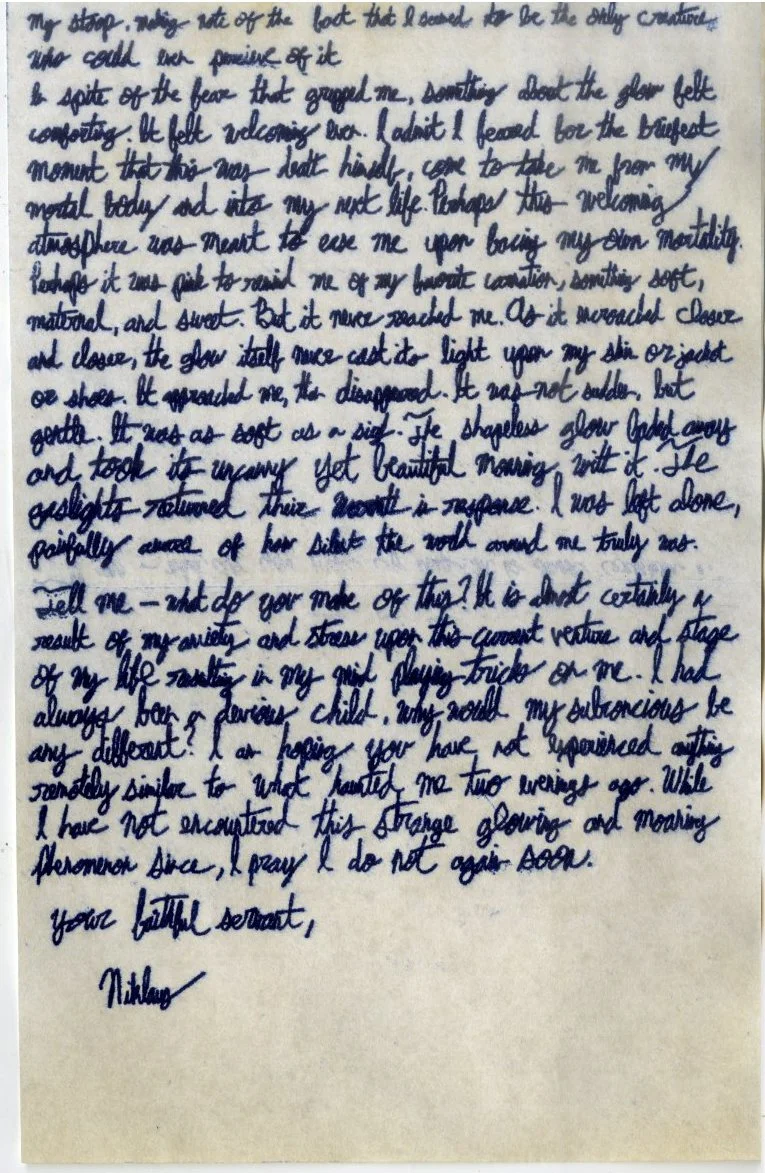 my stoop, making note of the fact that I seemed to be the only creature
who could even perceive of it
In spite of the fear that gripped me, something about the glow felt
comforting. It felt welcoming even. I admit I feared for the briefest
moment that this was death himself, come to take me from my
mortal body and into my next life. Perhaps this welcoming
atmosphere was meant to ease me upon facing my own mortality.
Perhaps it was pink to remind me of my favorite carnation, something soft,
maternal, and sweet. But it never reached me. As it encroached closer
and closer, the glow itself never cast its light upon my skin or jacket
or shoes. It approached me, then disappeared. It was not sudden, but
gentle. It was as soft as a sigh. The shapeless glow faded away
and took its uncanny yet beautiful moaning with it. The
gaslights returned their warmth in response. I was left alone,
painfully aware of how silent the world around me truly was.
Tell me — what do you make of this? It is almost certainly a
result of my anxiety and stress upon this current venture and stage
of my life resulting in my mind playing tricks on me. I had
always been a devious child, why would my subconcious be
any different? I am hoping you have not experienced anything
remotely similar to what haunted me two evenings ago. While
I have not encountered this strange glowing and moaning
phenomenon since, I pray I do not again soon.
your faithful servant,
Niklaus